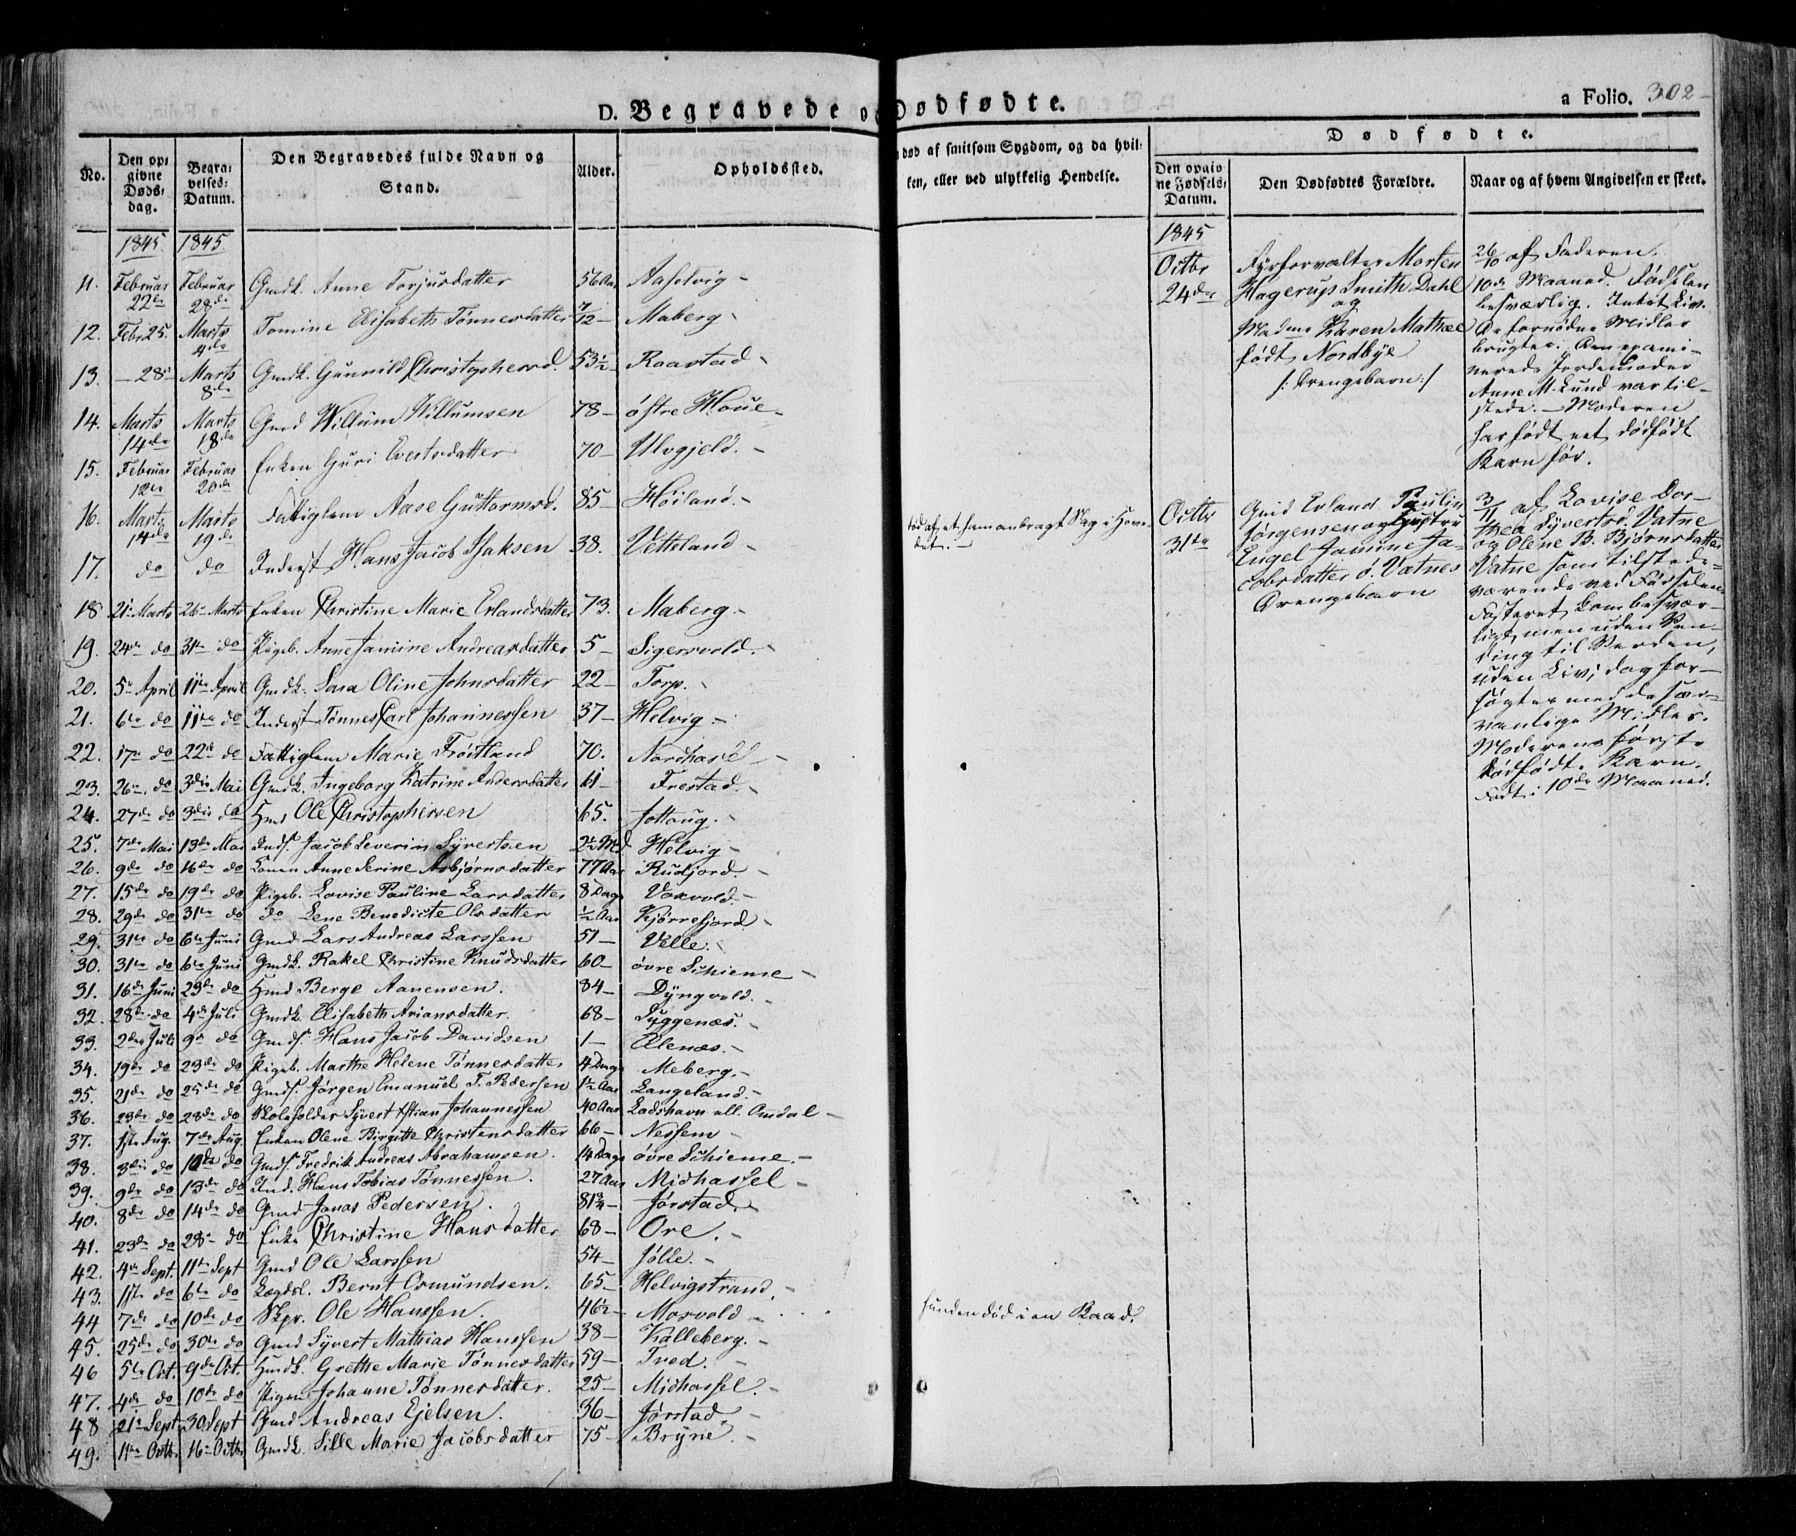 D. Begravede og Dødfødte.
a Folio. 302
No.
Den op-
givne
Døds-
dag.
Begra-
velses-
Datum.
Den Begravedes fulde Navn og
Stand.
Alder.
Opholdssted.
død af smitsom Sygdom, og da hvil-
ken, eller ved ulykkelig Hendelse.
Dødfødte.
Den opgiv
ne Fødsels-
Datum.
Den Dødfødtes Forældre.
Naar og af hvem Angivelsen er skeet.
1845 1845
11. Februar 22de Februar 28de Gmdk. Anne Torjusdatter 56 Aar Aaselvig
12. Febr 25 Marts 4de Tomine Elisabeth Tønnesdatter 7/12 Maberg
13. 28 Marts 8de Gmdk. Gunnild Christophersd. 53½ Raastad
14. Marts 14de Marts 18de Gmd Willum Willumsen 78 østre Houe
15. Februar 12te Februar 20de Enken Guri Evertsdatter 70 Ulvgjeld
16. Marts 14de Marts 19de Fattiglem Aase Guttormsd. 85 Høiland
17. do do Inderst Hans Jacob Isaksen 38. Vetteland
18 21de Marts 26 Marts Enken Christine Marie Erlandsdatter 73. Maberg
19. 24de do 31te do Pigeb. Anne Jamine Andreasdatter 5 Sigersvold
20. 5te April 11te April Gmdk. Sara Oline Johnsdatter 22 Torp
21. 6te do 11te do Inderst Tønnes Carl Johannessen 37 Helvig
22. 17de do 22de do Fattiglem Marie Frøitland 70. Nordhassel
23. 26de do 3die Mai Gmdk. Ingeborg Katrine Andersdatter 61 Frestad
24. 27de do 3die do Hmd Ole Christophersen 65. Jottoug
25. 7de Mai 13de Mai Inds. Jacob Severin Syvertsen 2½ Md Helvig
26. 9de do 16de do Konen Anne Serine Asbjørnsdatter 77 Aar Rudjord
27. 15de do 19de do Pigeb. Lovise Pauline Larsdatter 8 Dage Vaxvold
28. 29de do 31te do do Lene Benedicte Olsdatter ½ Aar Kjørrefjord
29. 31te do 6te Juni Gmd Lars Andreas Larssen 51 Velle
30. 31te do 6te Juni Gmdk. Rakel Christine Knudsdatter 60 øvre Skieme
31. 16de Juni 23de do Hmd Berge Aanensen. 84 Dyngvold
32. 28de do 4de Juli Gmdk. Elisabeth Ariansdatter. 68 Syggenæs
33. 2den Juli 9de do Gmds. Hans Jacob Davidsen 1 Ælenæs
34. 19de do 23de do Pigeb. Marthe Helene Tønnesdatter 4 Dage Meberg
35. 21de do 25de do Gmds. Jørgen Emanuel T. Pedersen 1½ Aar Langeland
36. 23de do 28de do Skoleholder Syvert Johannessen 40 Aar Ladshavn ell. Omdal
37. 1ste Aug. 7de Aug. Enken Olene Birgitte Christensdatter 66 Nessem
38. 3die do 10de do Gmds. Fredrik Andreas Abrahamsen. 14 Dage øvre Skieme
39. 9de do 13de do Ind. Hans Tobias Tønnessen. 27 Aar Midhassel
40. 8de do 14de do Gmd Jonas Pedersen. 81¾ Jørstad
41. 23de do 28de do Enke Christine Hansdatter 68 Ore
42. 4de Sept. 11te Sept Gmd Ole Larssen 54 Jølle
43. 1ste do 6te do Lægdsl. Bernt Osmundsen. 65 Helvigstrand
44 7de do 10de do Skpr. Ole Hanssen 46½ Mosvold funden død i en Baad.
45. 25de do 30te do Gmd Syvert Mathias Hanssen 38 Kalleberg
46 5te Oct. 9de Oct. Hmdk. Grethe Marie Tønnesdatter 59 Tved
47. 4de do 10de do Pigen Johanne Tønnesdatter. 25 Midhassel
48 21de Sept 30 Sept Gmd Andreas Ejelsen. 36 Jørstad
49. 11te Octbr 16 Octbr Gmdk. Sille Marie Jacobsdatter 75 Bryne
1845
Octbr
24de
Fyrforvalter Morten
Hagerup Smith Dahl
og
Madme Karen Mathæe
født Nordbye
/: Drengebarn :/
26/10 af Faderen.
10de Maaned. Fødselen
besværlig. Intet Liv.
De fornødne Midler
brugte. Den exami-
nerede Jordemoder
Anne M. Lund var til-
stede. Moderen
har født et dødfødt
Barn før.
Octbr
31te
Gmd Erland Paulin
Jørgensen og Hustru
Engel Jamine Ja-
cobsdatter ø. Vatnes
Drengebarn
3/11 af Lovise Dor-
thea Syvertsd. Vatne
og Olene B. Bjørnsdatter
Vatne som tilstede-
værende ved Fødselen
Fosteret kom besvær-
ligt, men uden Ven-
ding til Verden,
uden Liv; dog for-
søgtes med de sæd-
vanlige Midler.
Moderens første
dødfødte Barn.
Født i 10de Maaned.